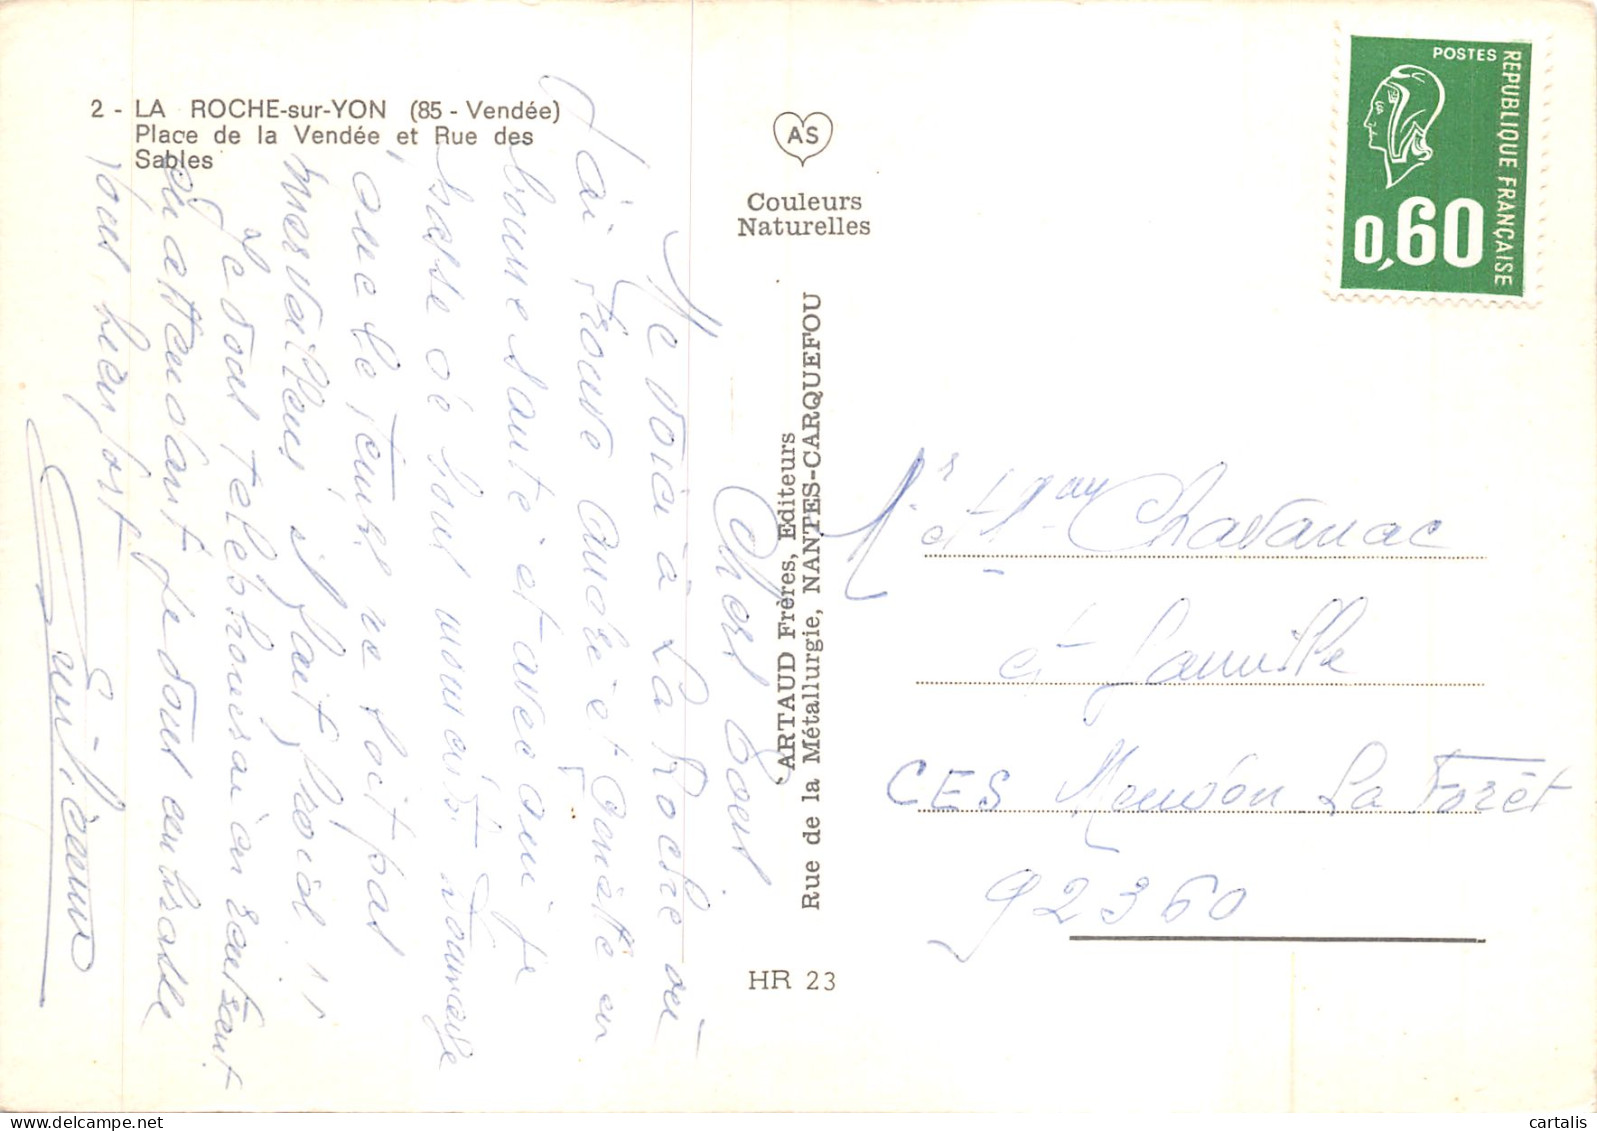 2 - LA ROCHE-sur-YON (85 - Vendée)
Place de la Vendée et Rue des
Sables
AS
Couleurs
Naturelles
ARTAUD Frères, Editeurs
Rue de la Métallurgie, NANTES-CARQUEFOU
HR 23
POSTES
REPUBLIQUE FRANÇAISE
0,60
Chers tous.
Me voici à La Roche où
J'ai trouvé André et Ginette en
bonne santé et avec qui je
passe de bons moments. Dommage
que le temps ne soit pas
merveilleux il fait froid !!
Je vous téléphonerai en rentrant
en attendant je vous embrasse
tous bien fort
Mr et Mme Chavanac
et famille
CES Meudon La Forêt
92360
cartalis